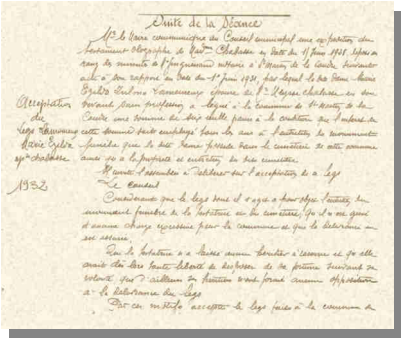 Suite de la Séance
Mr le Maire communique au Conseil municipal une expédition du
testament olographe de Mad. Chabasse en date du 15 Juin 1928, déposé au
rang des minutes de
acte à son rapport en date du 1er Juin 1931, par lequel la dite Dame Marie
épouse de Mr Chabasse, en son
vivant sans profession, a légué à la commune de St Martin de la
Coudre une somme de six mille francs à la condition que l'intérêt de
cette somme soit employé tous les ans à l'entretien du monument
funèbre que la dite Dame possède dans le cimetière de cette commune
ainsi qu'à la propreté et entretien du dit cimetière.
Il invite l'assemblée à délibérer sur l'acceptation de ce legs
Le Conseil
Considérant que le legs dont il s'agit a pour objet l'entretien du
monument funèbre de la testatrice et du cimetière, qu'il n'en peut
d'aucune charge excessive pour la commune et que la délivrance en
est assurée.
Que la testatrice n'a laissé aucun héritier à réserve et qu'elle
avait dès lors toute liberté de disposer de sa fortune suivant sa
volonté, que d'ailleurs les héritiers n'ont formé aucune opposition
à la délivrance du legs
Par ces motifs accepte le legs fait à la commune de
Acceptation
du
Legs
Marie
épse Chabasse
1932